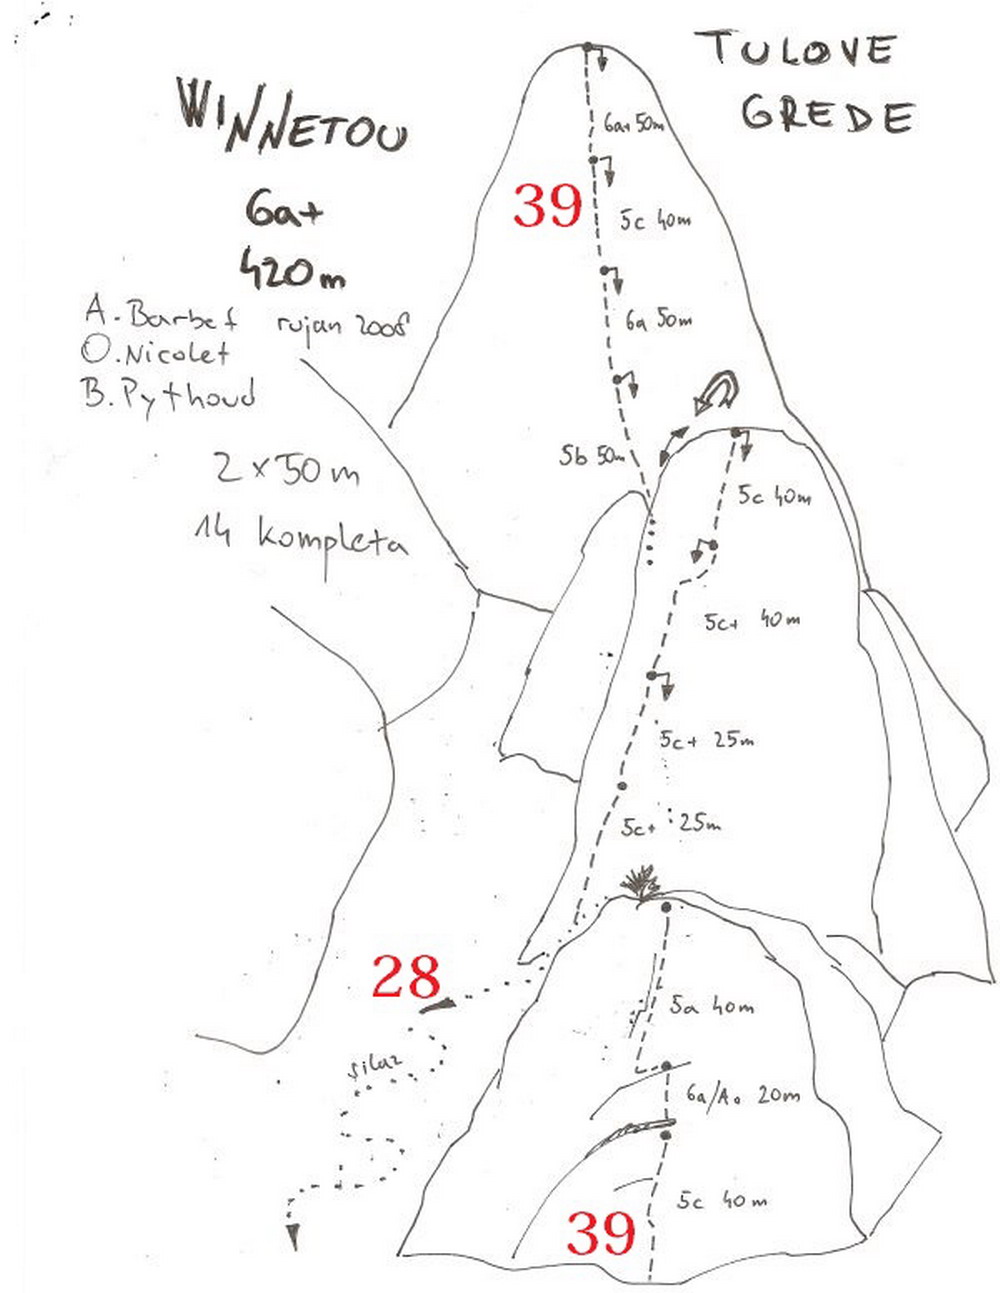 TULOVE
GREDE
WINNETOU
6a+
420m
A. Barbet rujan 2008
O. Nicolet
B. Pythoud
2 x 50 m
14 kompleta
6a+ 50m
39
5c 40m
6a 50m
5b 50m
5c 40m
5c+ 40m
5c+ 25m
5c+ 25m
28
silaz
5a 40m
6a/A0 20m
5c 40m
39